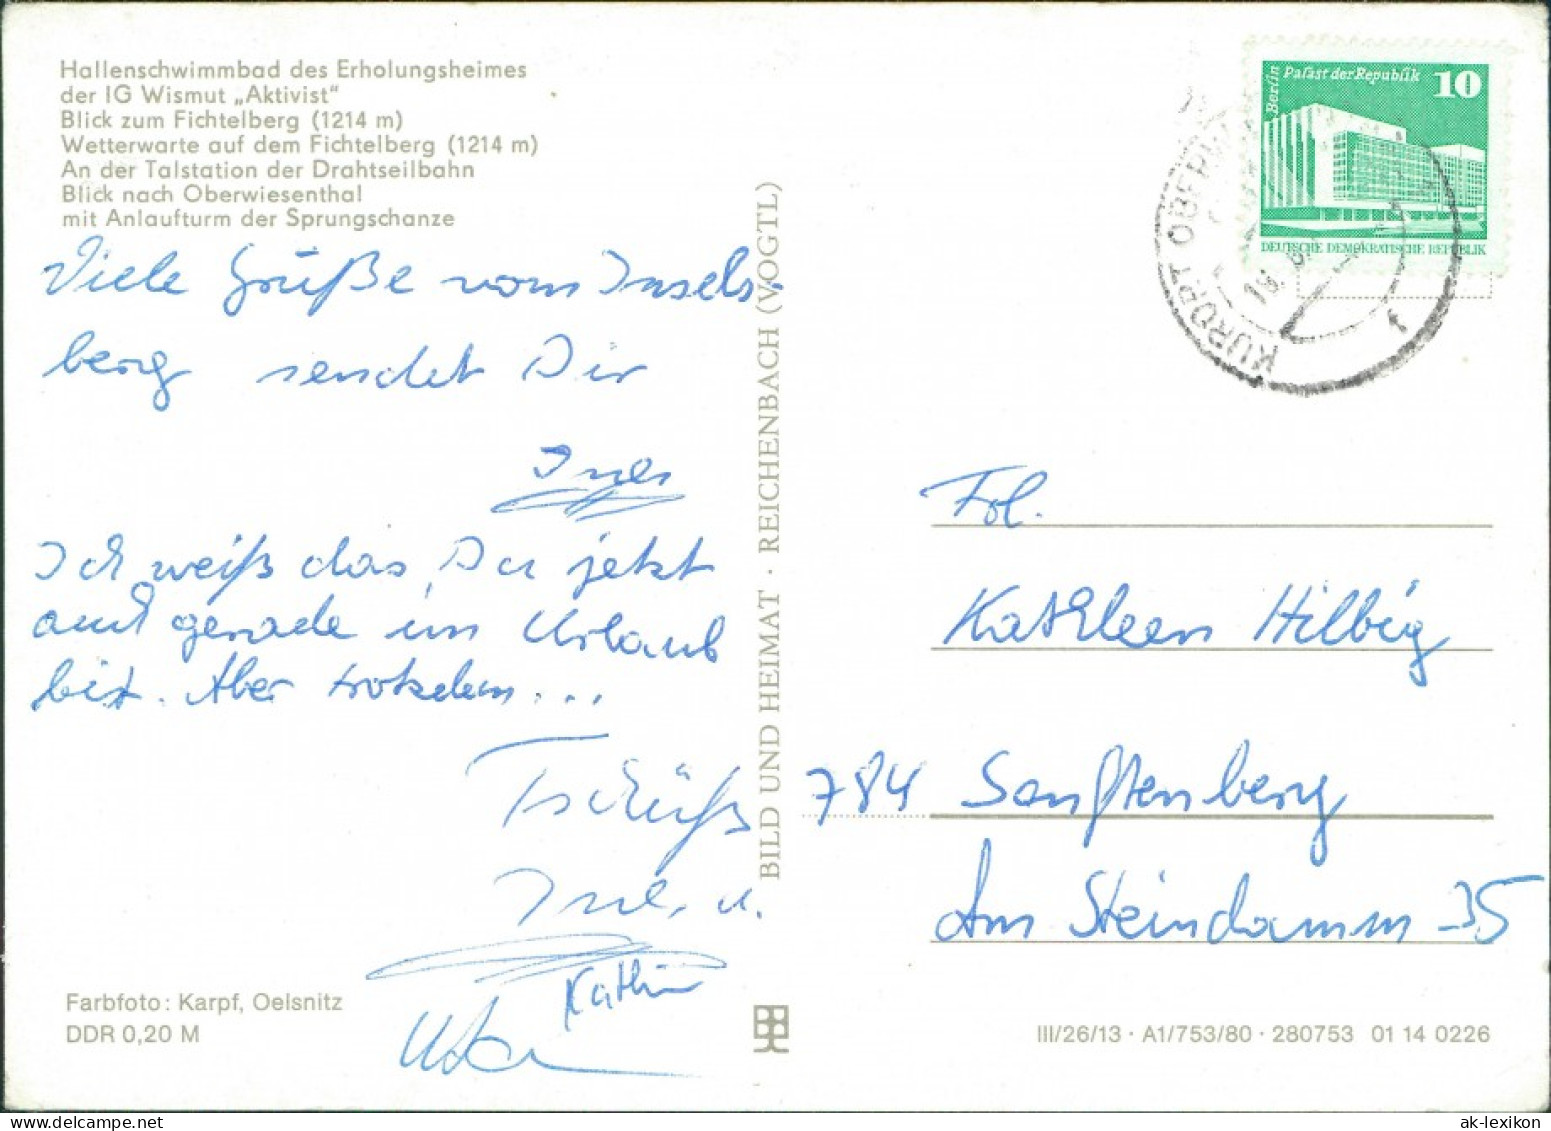 Hallenschwimmbad des Erholungsheimes
der IG Wismut „Aktivist“
Blick zum Fichtelberg (1214 m)
Wetterwarte auf dem Fichtelberg (1214 m)
An der Talstation der Drahtseilbahn
Blick nach Oberwiesenthal
mit Anlaufturm der Sprungschanze
Viele Grüße vom Insels-
berg sendet Dir
Ines
Ich weiß das Du jetzt
auch gerade im Urlaub
bist. Aber trotzdem...
Tschüß
Ines u.
Kathrin
Farbfoto: Karpf, Oelsnitz
DDR 0,20 M
BILD UND HEIMAT · REICHENBACH (VOGTL)
Berlin Palast der Republik 10
DEUTSCHE DEMOKRATISCHE REPUBLIK
KURORT OBERW
f
Frl.
Kathleen Hilbig
784 Senftenberg
Am Steindamm 35
III/26/13 · A1/753/80 · 280753 01 14 0226
ak-lexikon.com